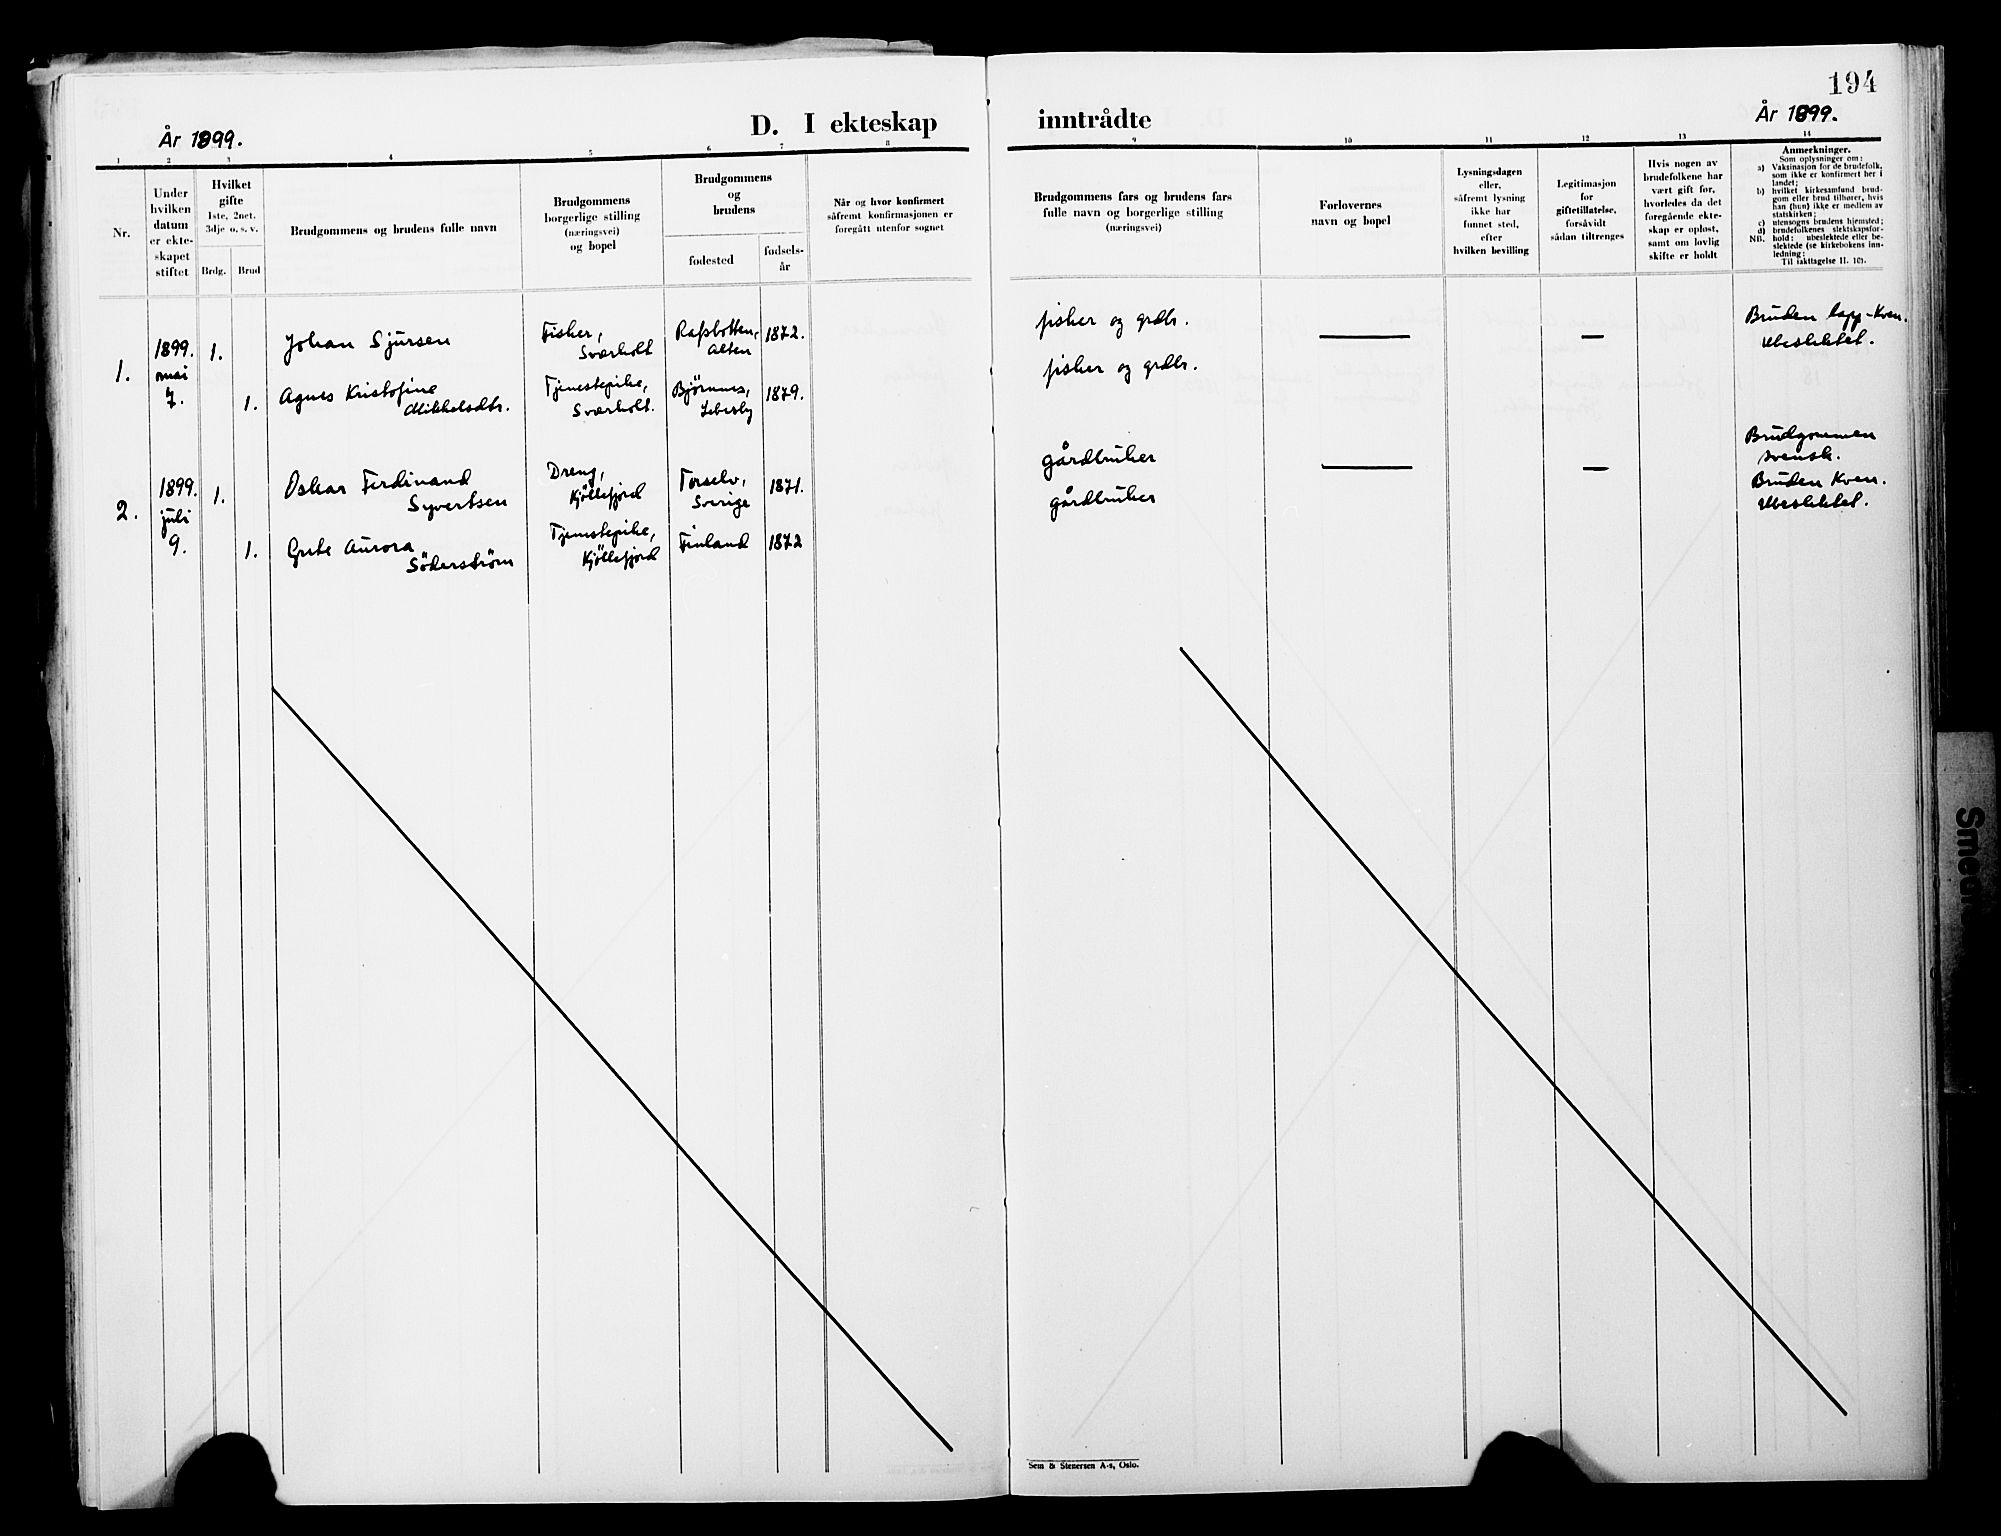 194
År 1899.
D. I ekteskap
inntrådte
År 1899.
1 2 3 4 5 6 7 8
9 10 11 12 13 14
Nr.
Under
hvilken
datum
er ekte-
skapet
stiftet
Hvilket
gifte
1ste, 2net.
3dje o. s. v.
Brdg.
Brud
Brudgommens og brudens fulle navn
Brudgommens
borgerlige stilling
(næringsvei)
og bopel
Brudgommens
og
brudens
fødested
fødsels-
år
Når og hvor konfirmert
såfremt konfirmasjonen er
foregått utenfor sognet
Brudgommens fars og brudens fars
fulle navn og borgerlige stilling
(næringsvei)
Forlovernes
navn og bopel
Lysningsdagen
eller,
såfremt lysning
ikke har
funnet sted,
efter
hvilken bevilling
Legitimasjon
for
giftetillatelse,
forsåvidt
sådan tiltrenges
Hvis nogen av
brudefolkene har
vært gift før,
hvorledes da det
foregående ekte-
skap er opløst,
samt om lovlig
skifte er holdt
Anmerkninger.
Som oplysninger om:
a) Vaksinasjon for de brudefolk,
som ikke er konfirmert her i
landet;
b) hvilket kirkesamfund brud-
gom eller brud tilhører, hvis
han (hun) ikke er medlem av
statskirken;
c) utensogns brudens hjemsted;
d) brudefolkenes slektskapsfor-
NB. hold: ubeslektede eller be-
slektede (se kirkebokens inn-
ledning:
Til iakttagelse II. 10).
1.
1899.
mai
7.
1.
Johan Sjursen
Fisker,
Sværholt
Rafsbotten,
Alten
1872.
fisker og grdbr.
—
—
Bruden lapp-Kven.
Ubeslektet.
1.
Agnes Kristofine
Mikkelsdtr.
Tjenestepike,
Sværholt.
Bjørnnes,
Lebesby
1879.
fisker og grdbr.
2.
1899.
juli
9.
1.
Oskar Ferdinand
Syvertsen
Dreng,
Kjöllefjord
Torselv,
Sverige
1871.
gårdbruker
—
—
Brudgommen
svensk.
Bruden Kven.
Ubeslektet.
1.
Grete Aurora
Söderström
Tjenestepike,
Kjöllefjord
Finland
1872
gårdbruker
Sem & Stenersen A-s, Oslo.